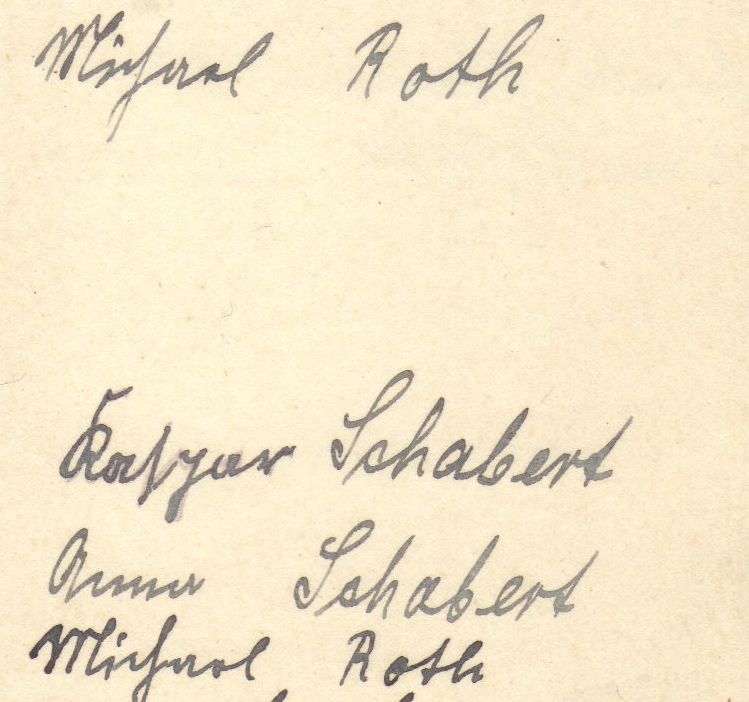 Michael Roth
Kaspar Schabert
Anna Schabert
Michael Roth